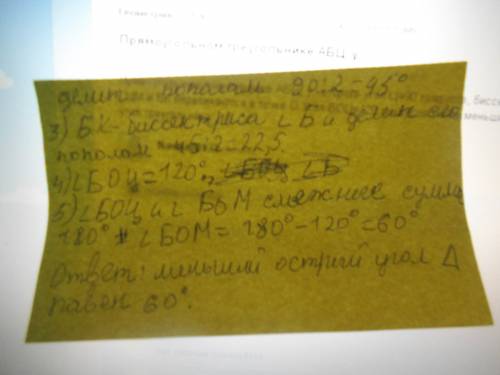 Прямоугольном треугольнике АБЦ у
делит пополам 90:2=45°
3) БК-биссектриса ∠Б и делит его
пополам 45:2=22,5.
4) ∠БОЦ=120°,
5) ∠БОЦ и ∠БОМ смежные сумма
180° ∠БОМ= 180°-120°=60°
Ответ: меньший острый угол Δ
равен 60°.